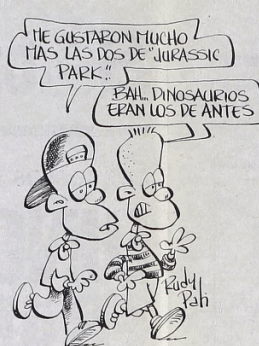 ME GUSTARON MUCHO
MAS LAS DOS DE "JURASSIC
PARK".
BAH... DINOSAURIOS
ERAN LOS DE ANTES
Rudy
Pati